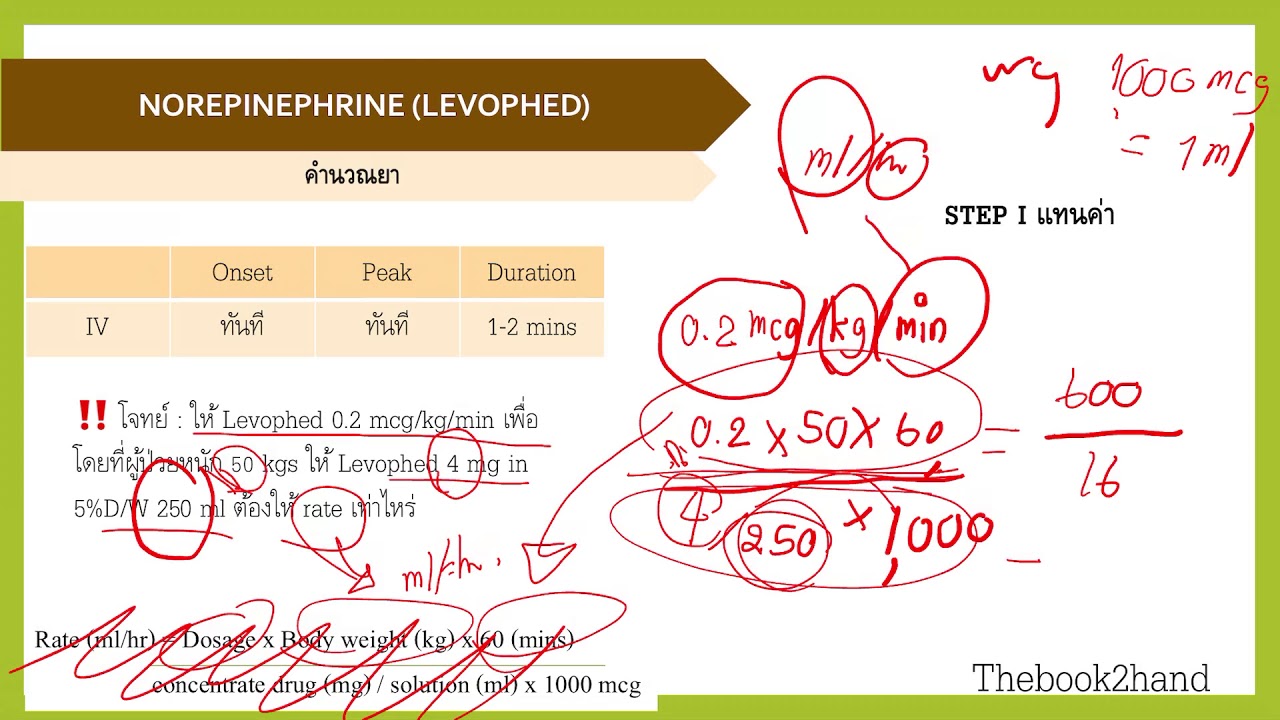 NOREPINEPHRINE (LEVOPHED)
คำนวณยา
Onset Peak Duration
IV ทันที ทันที 1-2 mins
‼ โจทย์ : ให้ Levophed 0.2 mcg/kg/min เพื่อ
โดยที่ผู้ป่วยหนัก 50 kgs ให้ Levophed 4 mg in
5%D/W 250 ml ต้องให้ rate เท่าไหร่
ml/hr
Rate (ml/hr) = Dosage x Body weight (kg) x 60 (mins)
concentrate drug (mg) / solution (ml) x 1000 mcg
mg 1000 mcg
= 1 ml
ml/hr
STEP I แทนค่า
0.2 mcg/kg/min
0.2 x 50 x 60 = 600
4 250 x 1000 = 16
Thebook2hand